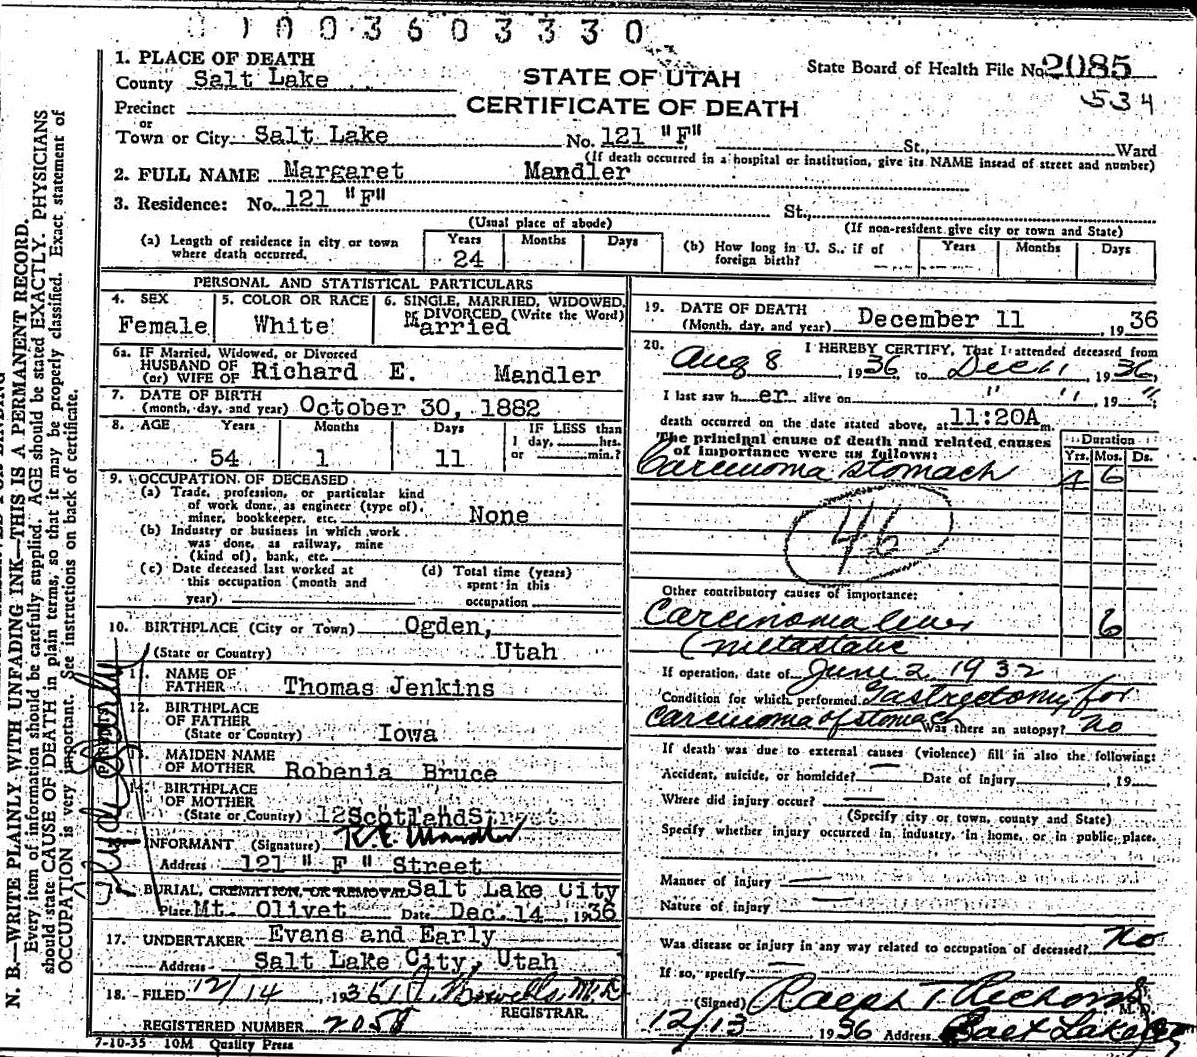 0 1 0 0 3 6 0 3 3 3 0
1. PLACE OF DEATH
County Salt Lake
STATE OF UTAH
State Board of Health File No. 2085
Precinct
CERTIFICATE OF DEATH
534
or
Town or City Salt Lake No. 121 "F" St., Ward
(If death occurred in a hospital or institution, give its NAME insead of street and number)
2. FULL NAME Margaret Mandler
3. Residence: No. 121 "F" St.,
(Usual place of abode) (If non-resident give city or town and State)
(a) Length of residence in city or town where death occurred. Years 24 Months Days
(b) How long in U. S. if of foreign birth? Years Months Days
PERSONAL AND STATISTICAL PARTICULARS
4. SEX Female
5. COLOR OR RACE White
6. SINGLE, MARRIED, WIDOWED, or DIVORCED (Write the Word) Married
6a. IF Married, Widowed, or Divorced
HUSBAND OF
(or) WIFE OF Richard E. Mandler
7. DATE OF BIRTH
(month, day, and year) October 30, 1882
8. AGE Years Months Days IF LESS than
1 day, hrs.
or min.?
54 1 11
9. OCCUPATION OF DECEASED
(a) Trade, profession, or particular kind
of work done, as engineer (type of),
miner, bookkeeper, etc. None
(b) Industry or business in which work
was done, as railway, mine
(kind of), bank, etc.
(c) Date deceased last worked at
this occupation (month and
year)
(d) Total time (years)
spent in this
occupation
10. BIRTHPLACE (City or Town) Ogden,
(State or Country) Utah
PARENTS
11. NAME OF
FATHER Thomas Jenkins
12. BIRTHPLACE
OF FATHER
(State or Country) Iowa
13. MAIDEN NAME
OF MOTHER Robenia Bruce
14. BIRTHPLACE
OF MOTHER
(State or Country) Scotland
INFORMANT (Signature) R.E. Mandler
Address 121 " F " Street
BURIAL, CREMATION, OR REMOVAL Salt Lake City
Place Mt. Olivet Date Dec. 14, 1936
17. UNDERTAKER Evans and Early
Address Salt Lake City, Utah
18. FILED 12/14, 1936 M.D.
REGISTRAR.
REGISTERED NUMBER 2058
7-10-35 10M Quality Press
19. DATE OF DEATH
(Month, day, and year) December 11, 1936
20. I HEREBY CERTIFY, That I attended deceased from
Aug 8 1936, to Dec 11, 1936,
I last saw h er alive on " ", 19 ";
death occurred on the date stated above, at 11:20A m.
The principal cause of death and related causes
of importance were as follows:
Duration
Yrs. Mos. Ds.
Carcinoma stomach 4 6
46
Other contributory causes of importance:
Carcinoma liver 6
(metastatic
If operation, date of June 2, 1932
Condition for which performed Gastrectomy for
Carcinoma of stomach Was there an autopsy? no
If death was due to external causes (violence) fill in also the following:
Accident, suicide, or homicide? Date of injury 19
Where did injury occur?
(Specify city or town, county and State)
Specify whether injury occurred in industry, in home, or in public place.
Manner of injury
Nature of injury
Was disease or injury in any way related to occupation of deceased? No
If so, specify
(Signed) Ralph T Richards M. D.
12/13 1936 Address Salt Lake City
N. B.—WRITE PLAINLY WITH UNFADING INK—THIS IS A PERMANENT RECORD.
Every item of information should be carefully supplied. AGE should be stated EXACTLY. PHYSICIANS
should state CAUSE OF DEATH in plain terms, so that it may be properly classified. Exact statement of
OCCUPATION is very important. See instructions on back of certificate.